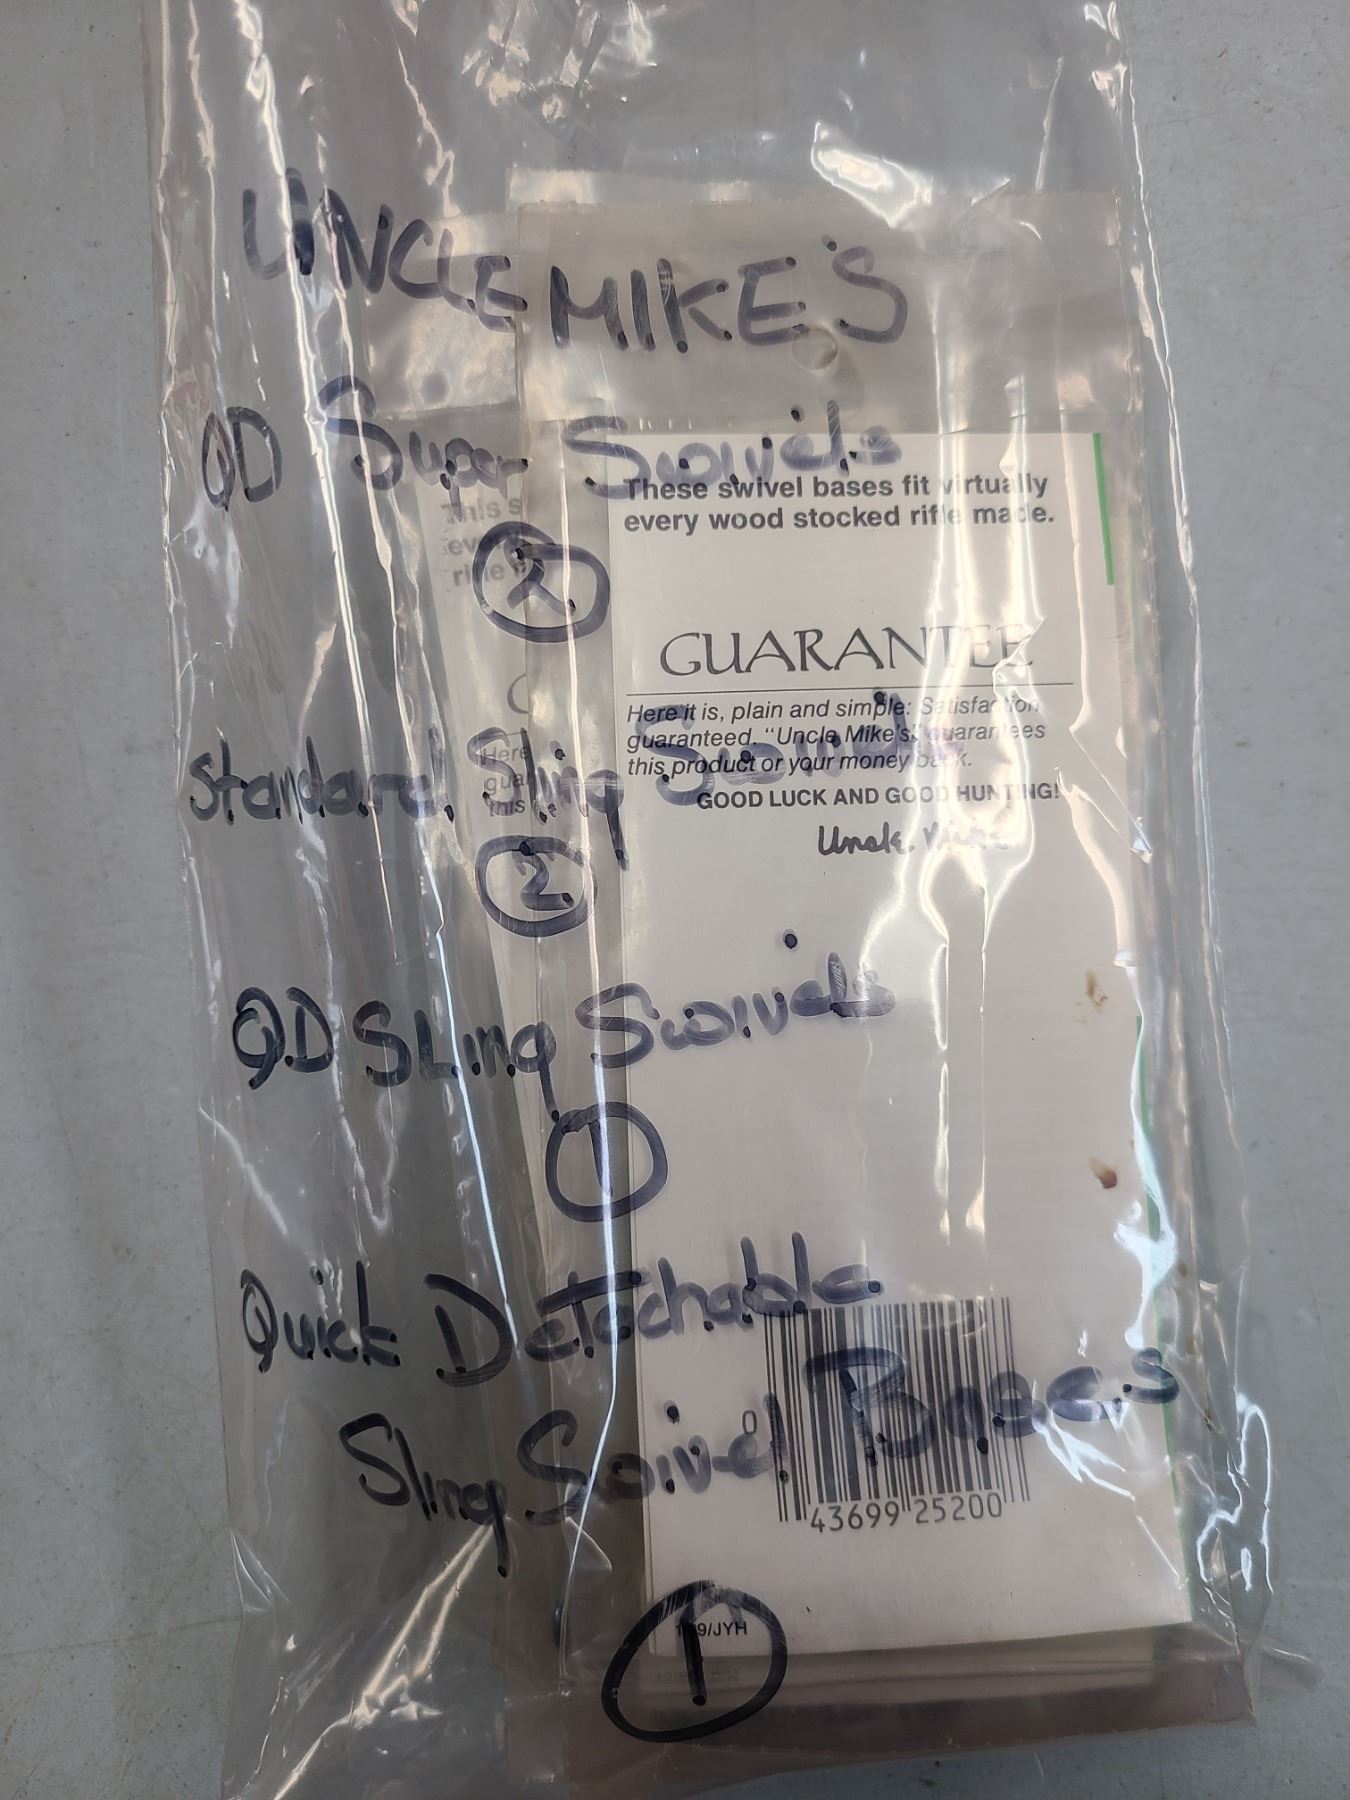 UNCLE MIKE'S
QD Super Swivels
These swivel bases fit virtually
every wood stocked rifle made.
This s
rifle
2
GUARANTEE
Here it is, plain and simple: Satisfaction
guaranteed. "Uncle Mike's" guarantees
this product or your money back.
GOOD LUCK AND GOOD HUNTING!
Uncle Mike
Here
gua
this
Standard Sling Swivels
2
QD Sling Swivels
1
Quick Detachable
Sling Swivel Bases
0 43699 25200
9/JYH
1